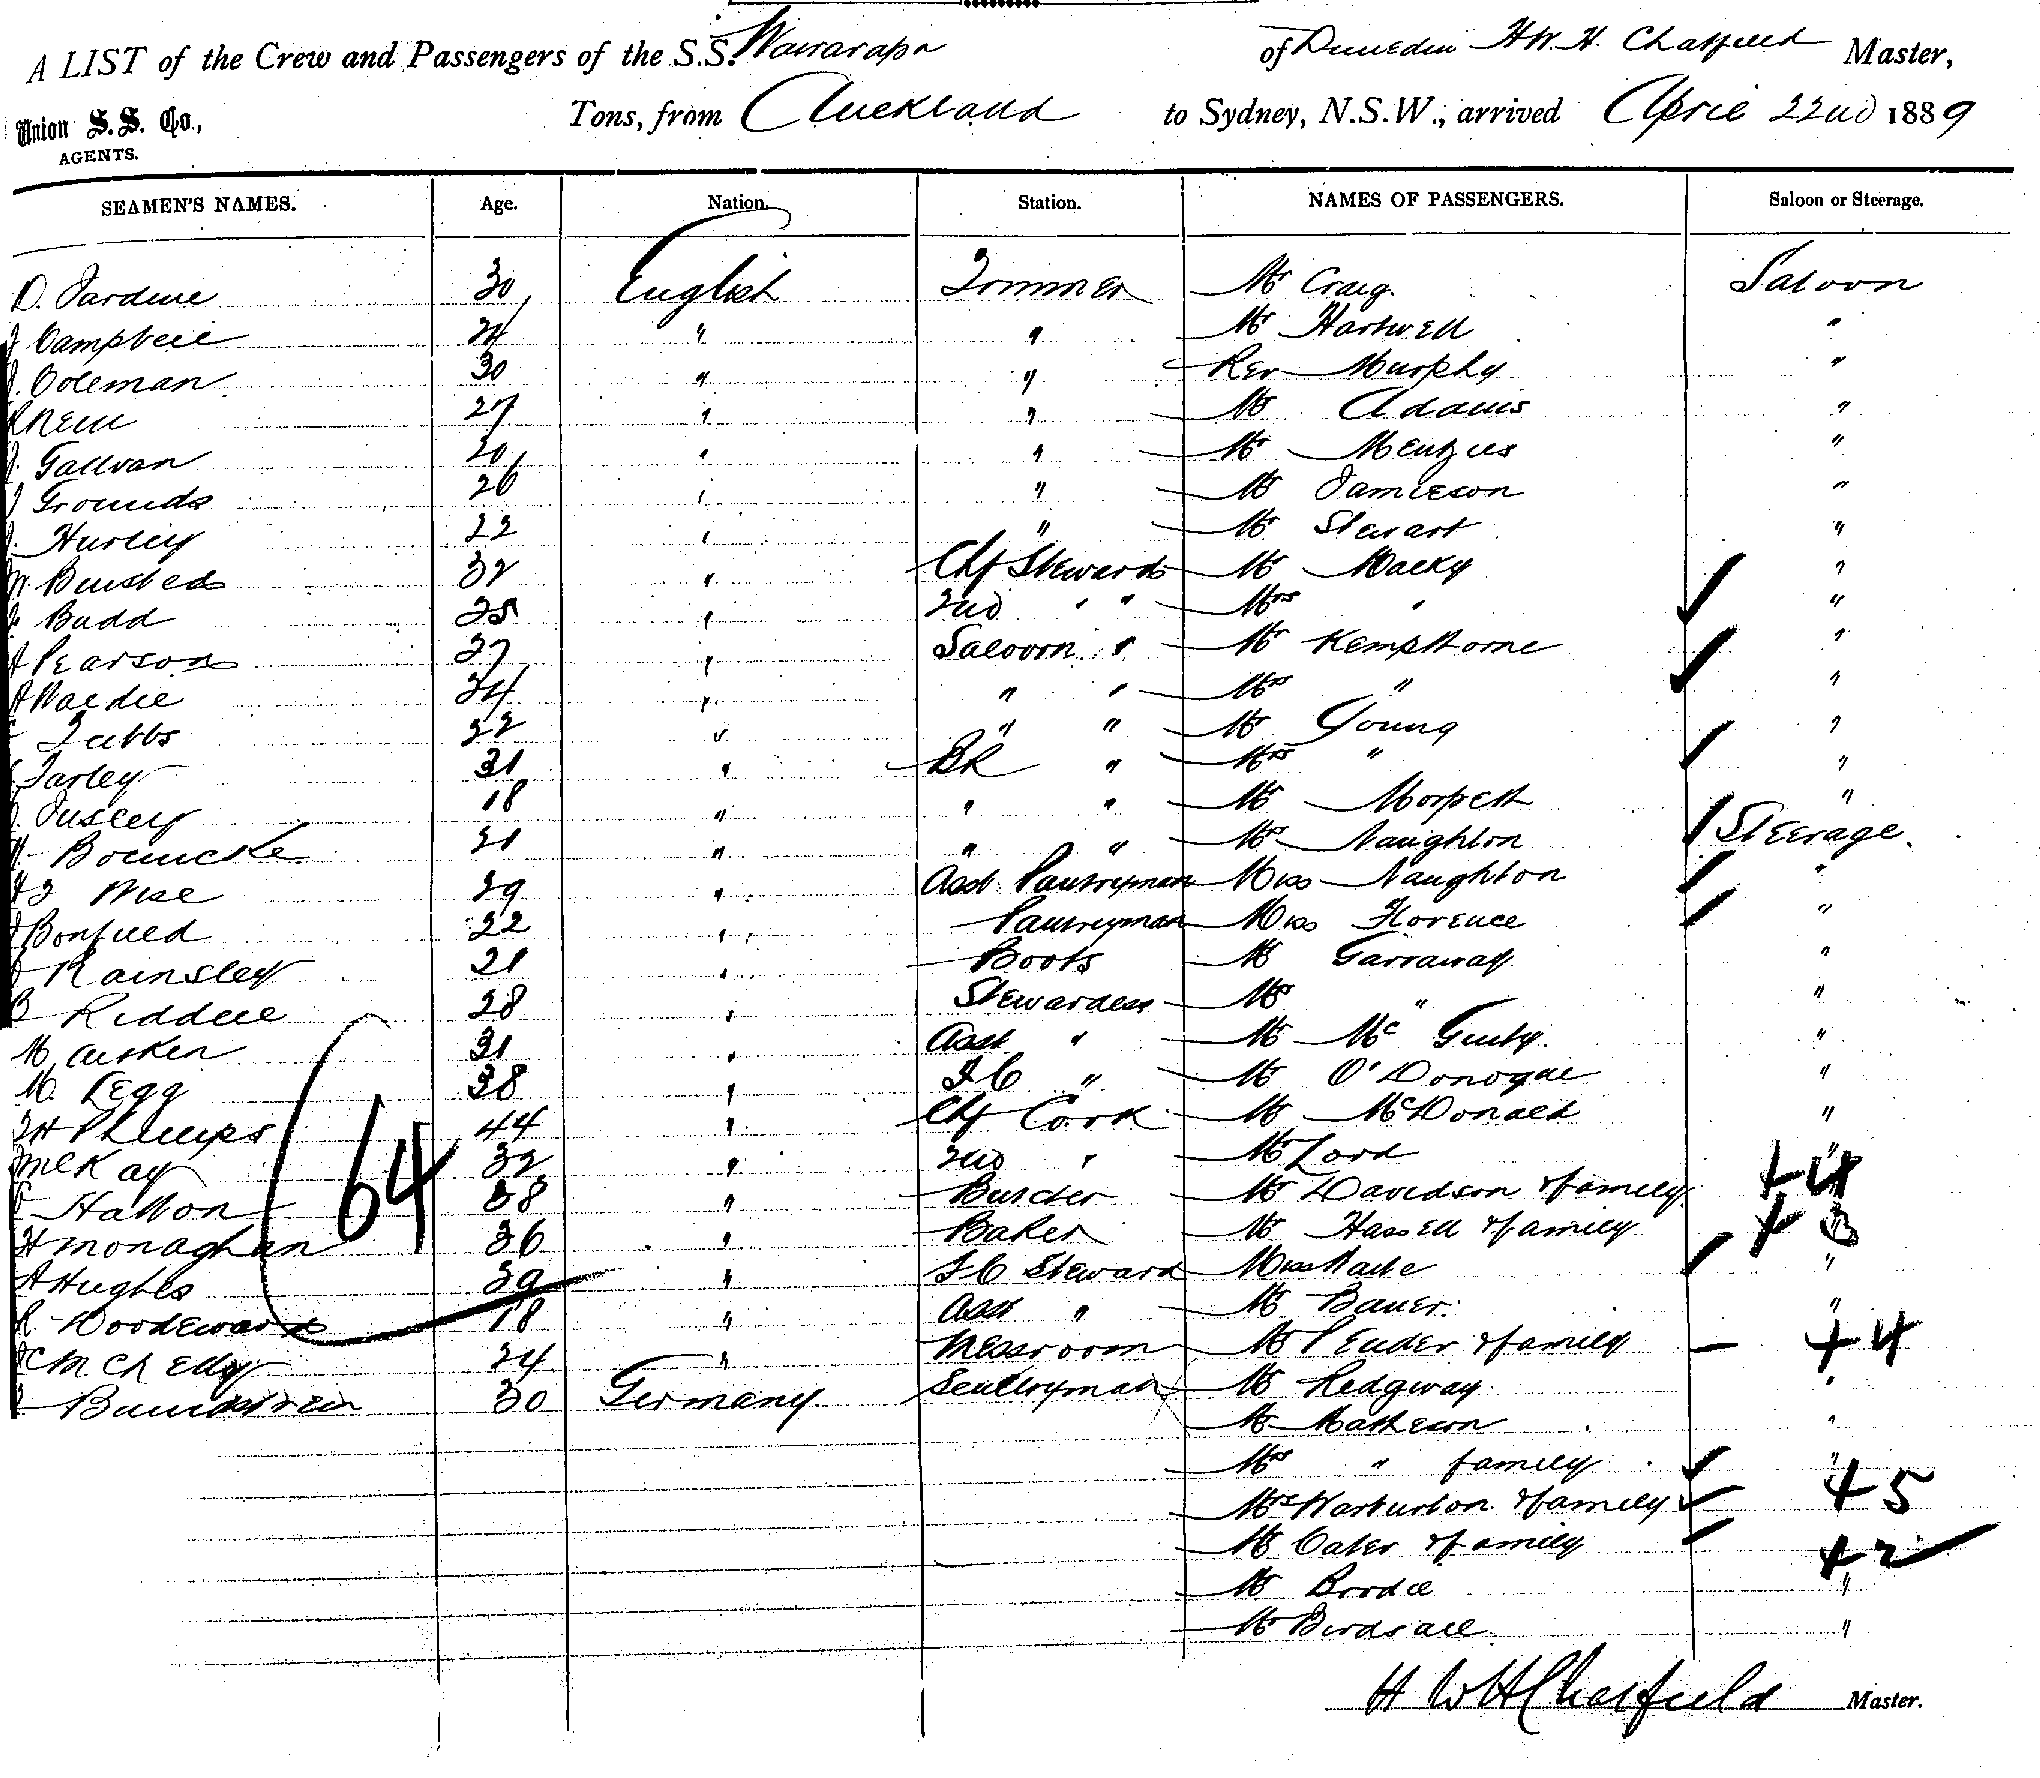 A LIST of the Crew and Passengers of the S.S. Wairarapa of Dunedin H.W.H. Chatfield Master,
Union S.S. Co., AGENTS. Tons, from Auckland to Sydney, N.S.W., arrived April 22nd 1889
SEAMEN'S NAMES. Age. Nation. Station. NAMES OF PASSENGERS. Saloon or Steerage.
D. Jardine 30 English Trimmer Mr Craig. Saloon
J Campbell 24 " " Mr Hartwell "
J. Coleman 30 " " Rev Murphy "
27 " " Mr Adams "
J. Gallvan 20 " " Mr Menzies "
J Grounds 26 " " Mr Jamieson "
J. Hurley 22 " " Mr Stewart "
W Binsted 32 " Chf Steward Mr Macky "
Budd 25 " 2nd " " Mrs " "
A Pearson 27 " Saloon " Mr Kempthorne "
A Wardie 24 " " " Mrs " "
Tubbs 22 " " " Mr Young "
Farley 31 " BR " Mrs " "
18 " " " Mr Morpeth "
21 " " " Mrs Naughton Steerage.
Wise 29 " Asst Pantryman Miss Naughton "
J Bonfield 22 " Pantryman Miss Florence "
J Rainsley 21 " Boots Mr Garraway "
B Riddell 28 " Stewardess Mrs " "
M. Aitken 31 " Asst " Mr Mc Ginty. "
M. Legg 38 " F C " Mr O'Donogue "
Phillips 44 " Chf Cook Mr McDonald "
McKay 32 " 2nd " Mr Lord "
Hatton 38 " Butcher Mr Davidson & family + 4
H Monaghan 36 " Baker Mr Hassell & family + 3
A Hughes 29 " F C Steward Miss "
R Woodeward 18 " Asst " Mr Bauer. "
24 " Messroom Mr Pender & family + 4
30 Germany Scullryman Mr Redgway. "
Mr Matheson "
Mrs " family "
Mrs Warburton & family + 5
Mr Cater & family + 2
Mr Brodie "
Mr Birdsall. "
64
H W H Chatfield Master.